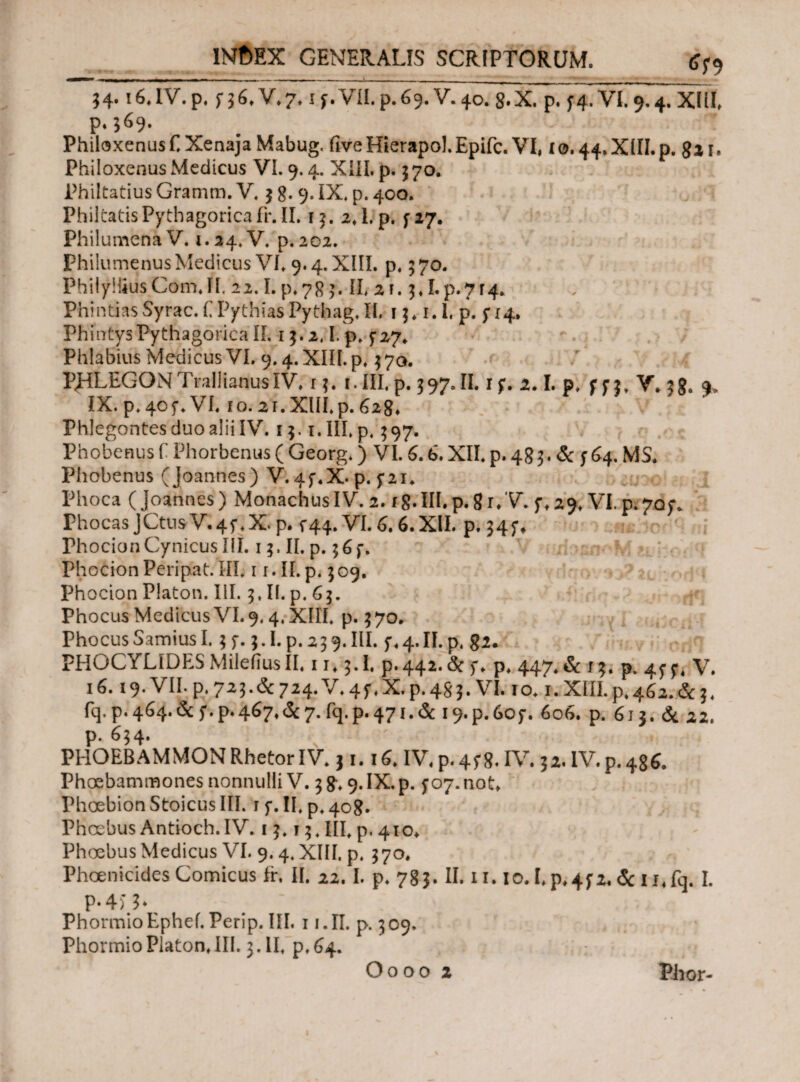 INDEX GENERALIS SCRIPTORUM. 659
34. 16. IV. p. 536. V. 7. 15. VII. p. 69. V. 40. 8. X. p. 54. VI. 9. 4. XIII.
p. 369.
Philoxenus ſ. Xenaja Mabug. ſive Hierapol. Epiſc. VI. 10. 44. XIII. p. 821.
Philoxenus Medicus VI. 9. 4. XIII. p. 370.
Philtatius Gramm. V. 38. 9. IX. p. 400.
Philtatis Pythagorica fr. II. 13. 2. I. p. 527.
Philumena V. 1. 24. V. p. 202.
Philumenus Medicus VI. 9. 4. XIII. p. 370.
Philyllius Com. II. 22. I. p. 783. II. 21. 3. I. p. 714.
Phintias Syrac. ſ. Pythias Pythag. II. 13. 1. I. p. 514.
Phintys Pythagorica II. 13. 2. I. p. 527.
Phlabius Medicus VI. 9. 4. XIII. p. 370.
PHLEGON Trallianus IV. 13. 1. III. p. 397. II. 15. 2. I. p. 553. V. 38. 9.
IX. p. 405. VI. 10. 21. XIII. p. 628.
Phlegontes duo alii IV. 13. 1. III. p. 397.
Phobenus ſ. Phorbenus ( Georg. ) VI. 6. 6. XII. p. 483. & 564. MS.
Phobenus (Joannes) V. 45. X. p. 521.
Phoca (Joannes) Monachus IV. 2. 18. III. p. 81. V. 5. 29. VI. p. 705.
Phocas JCtus V. 45. X. p. 544. VI. 6. 6. XII. p. 345.
Phocion Cynicus III. 13. II. p. 365.
Phocion Peripat. III. 11. II. p. 309.
Phocion Platon. III. 3. II. p. 63.
Phocus Medicus VI. 9. 4. XIII. p. 370.
Phocus Samius I. 35. 3. I. p. 239. III. 5. 4. II. p. 82.
PHOCYLIDES Mileſius II. 11. 3. I. p. 442. & 5. p. 447. & 13. p. 455. V.
16. 19. VII. p. 723. & 724. V. 45. X. p. 483. VI. 10. 1. XIII. p. 462. & 3.
ſq. p. 464. & 5. p. 467. & 7. ſq. p. 471. & 19. p. 605. 606. p. 613. & 22.
p. 634.
PHOEBAMMON Rhetor IV. 31. 16. IV. p. 458. IV. 32. IV. p. 486.
Phœbammones nonnulli V. 38. 9. IX. p. 507. not.
Phœbion Stoicus III. 15. II. p. 408.
Phœbus Antioch. IV. 13. 13. III. p. 410.
Phœbus Medicus VI. 9. 4. XIII. p. 370.
Phœnicides Comicus fr. II. 22. I. p. 783. II. 11. 10. I. p. 452. & 11. ſq. I.
p. 453.
Phormio Epheſ. Perip. III. 11. II. p. 309.
Phormio Platon. III. 3. II. p. 64.
Oooo 2 Phor-